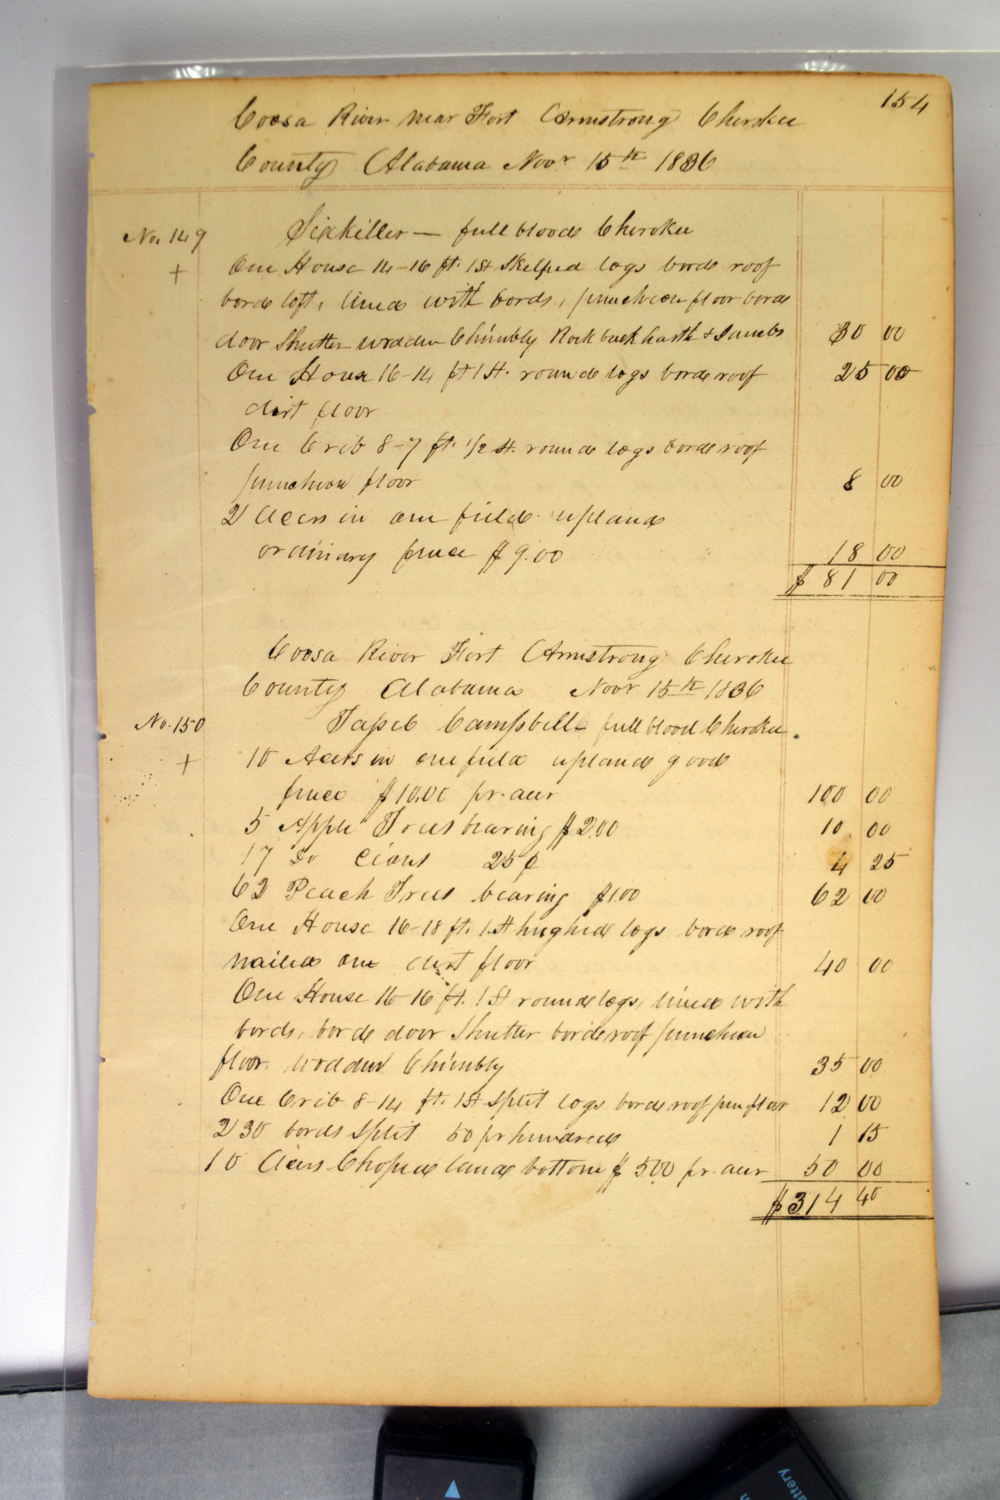 154
Coosa River near Fort Armstrong Cherokee
County Alabama Novr 15th 1836
No. 149 Sixkiller — full blood Cherokee
+ One House 14-16 ft. 1 St Skelped logs bord roof
bord loft, lined with bords, puncheon floor bord
door Shutter wooden Chimbly Rock back harth & Jambs 30 00
One House 16-14 ft 1 St. round logs bord roof 25 00
dirt floor
One Crib 8-7 ft. 1/2 St. round logs bord roof
puncheon floor 8 00
2 Acers in one field upland
ordinary price $9.00 18 00
$ 81 00
Coosa River Fort Armstrong Cherokee
County Alabama Novr 15th 1836
No. 150 Campbell full blood Cherokee.
+ 10 Acers in one field upland good
price $10.00 pr. acer 100 00
5 Apple Trees bearing $2.00 10 00
17 Do 25¢ 4 25
62 Peach Trees bearing $1.00 62 00
One House 16-18 ft. 1 St hughed logs bord roof
nailed one dirt floor 40 00
One House 16-16 ft. 1 St round logs, lined with
bords, bord door Shutter bord roof puncheon
floor, wooden Chimbly 35 00
One Crib 8-14 ft. 1 St split logs bord roof pun floor 12 00
230 bords Split 50 pr hundred 1 15
10 Acers Choped land bottom $5.00 pr. acer 50 00
$314 40
ttery